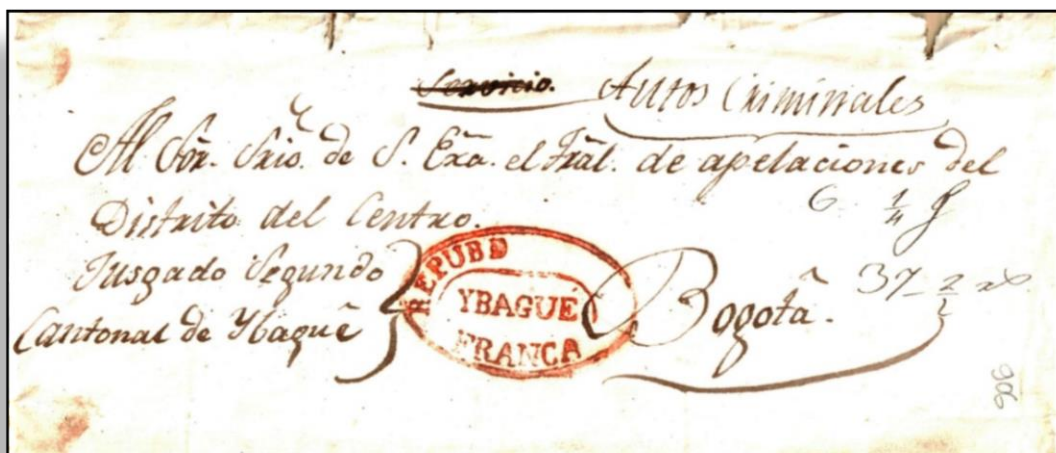 Servicio. Autos Criminales
Al Sõr. Srio. de S. Exã. el Trãl. de apelaciones del
Distrito del Centro.
6 1/4
Jusgado Segundo
Cantonal de Ybaguê
REPUBD
YBAGUE
FRANCA
Bogotã.
37